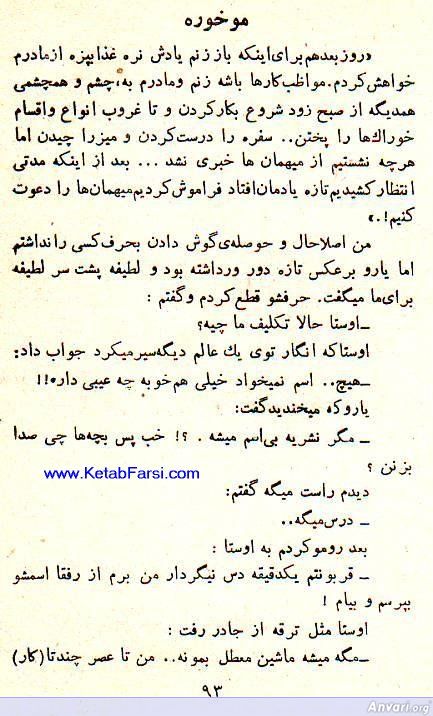 موخوره
«روز بعد هم برای اینکه باز زنم یادش نره غذا بپزه از مادرم
خواهش کردم. مواظب کارها باشه زنم ومادرم به، چشم و همچشمی
همدیگه از صبح زود شروع بکار کردن و تا غروب انواع واقسام
خوراك‌ها را پختن.. سفره را درست کردن و میز را چیدن اما
هرچه نشستیم از میهمان ها خبری نشد ... بعد از اینکه مدتی
انتظار کشیدیم تازه یادمان افتاد فراموش کردیم میهمان‌ها را دعوت
کنیم!.»
من اصلا حال و حوصله‌ی گوش دادن بحرف کسی را نداشتم
اما یارو برعکس تازه دور ورداشته بود و لطیفه پشت سر لطیفه
برای ما میگفت. حرفشو قطع کردم و گفتم :
ـ اوستا حالا تکلیف ما چیه؟
اوستا که انگار توی یك عالم دیگه سیر میکرد جواب داد:
ـ هیچ.. اسم نمیخواد خیلی هم خوبه چه عیبی داره!!
یارو که میخندید گفت:
ـ مگر نشریه بی‌اسم میشه . ؟! خب پس بچه‌ها چی صدا
بزنن ؟
www.KetabFarsi.com
دیدم راست میگه گفتم:
ـ درس میگه..
بعد رومو کردم به اوستا :
ـ قربونتم یکدقیقه دس نیگردار من برم از رفقا اسمشو
بپرسم و بیام !
اوستا مثل ترقه از جادر رفت :
ـ مگه میشه ماشین معطل بمونه.. من تا عصر چندتا (کار)
۹۳
Anvari.org